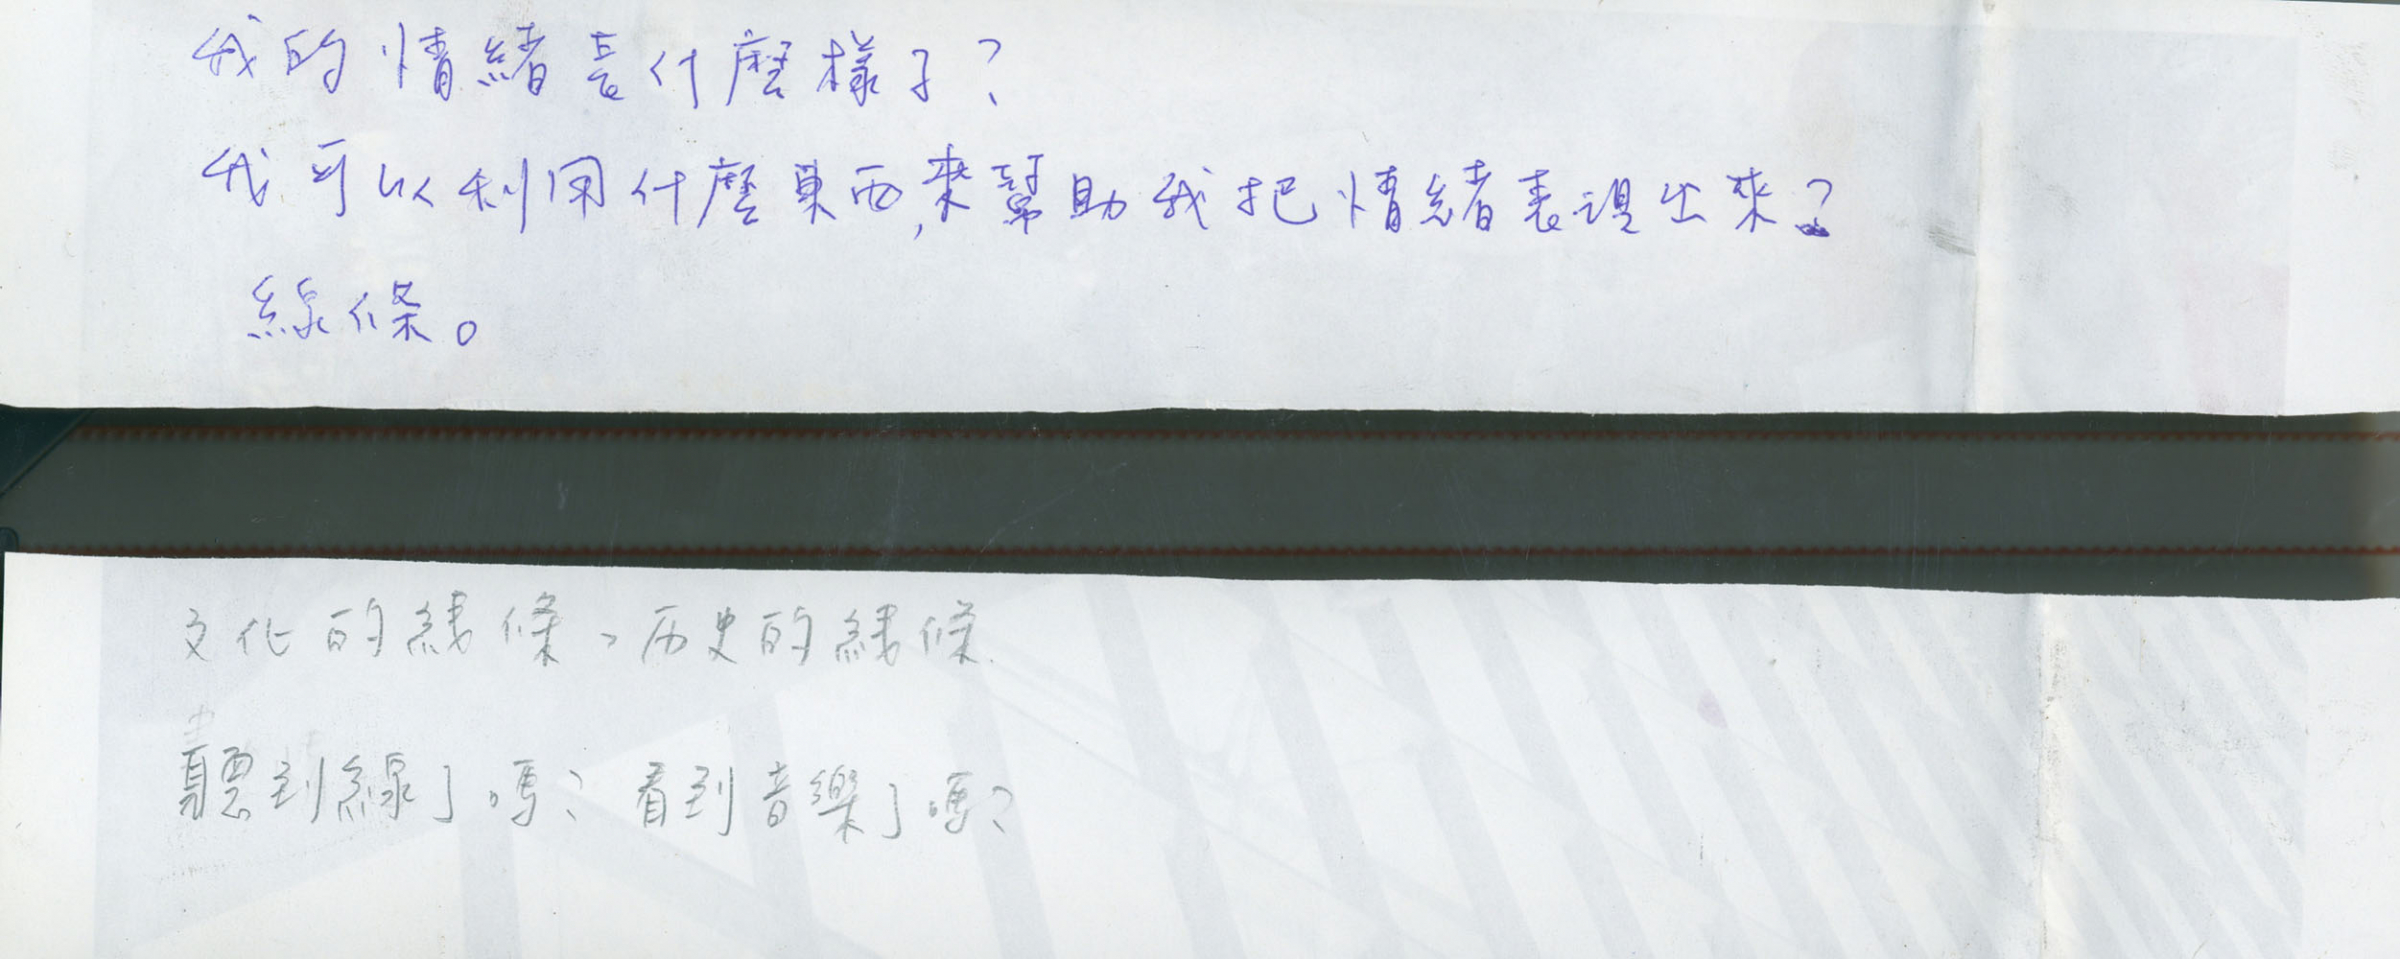 我的情緒長什麼樣子？
我可以利用什麼東西,來幫助我把情緒表現出來？
線條。
文化的綫條、历史的綫條
聽到線了嗎？看到音樂了嗎？